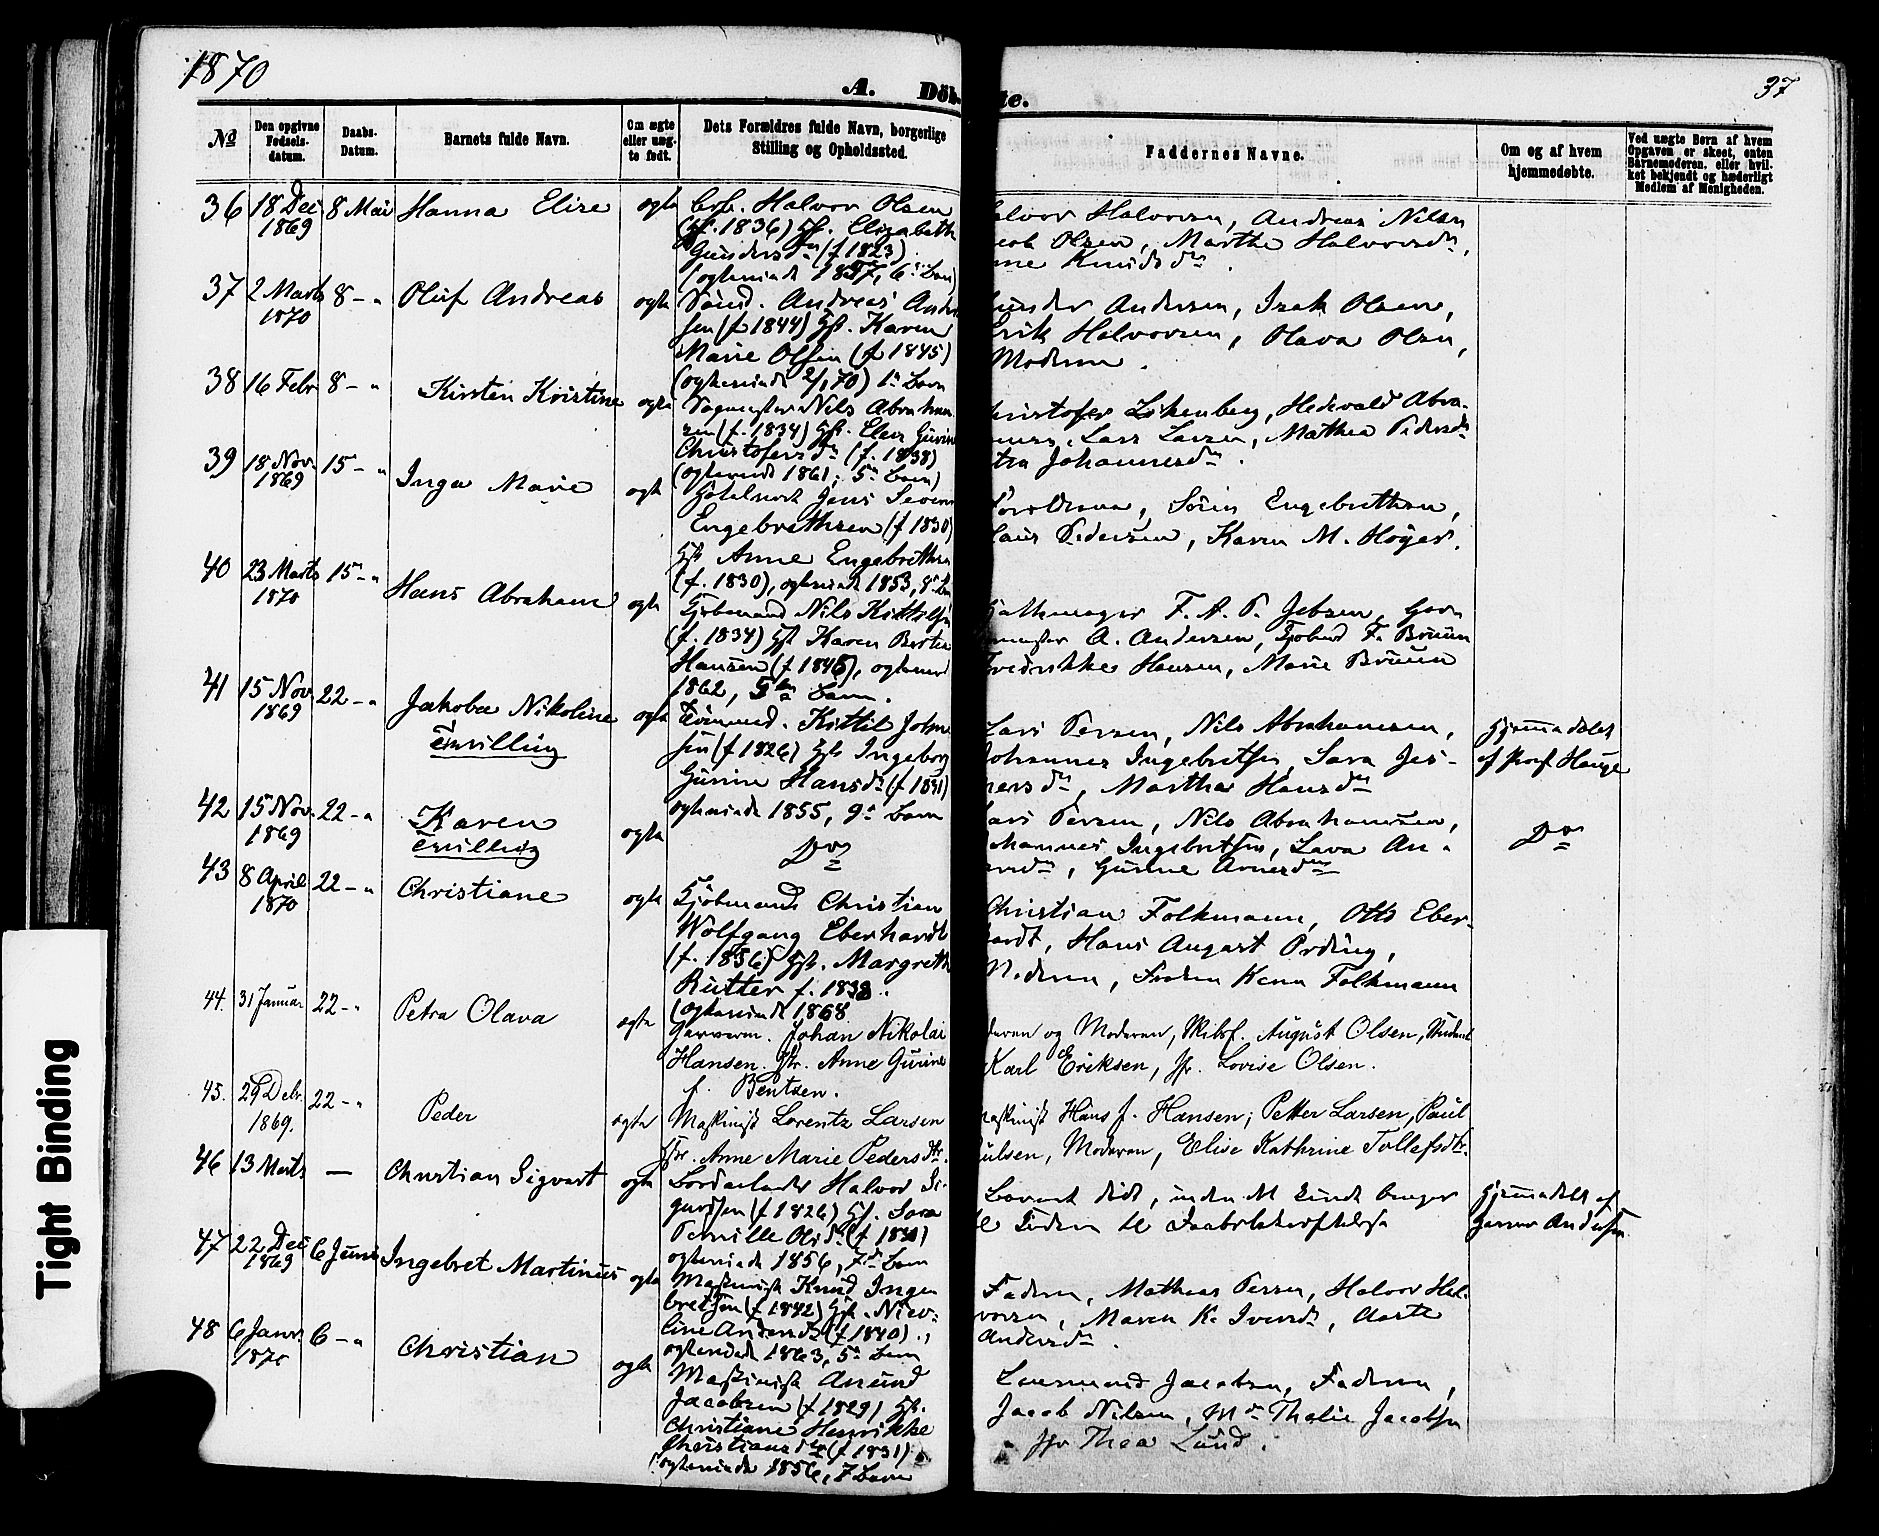 1870
37
A. Döb
te.
No
Den opgivne Fødsels-datum.
Daabs-Datum.
Barnets fulde Navn.
Om ægte eller uæg-te født.
Dets Forældres fulde Navn, borgerlige Stilling og Opholdssted.
Faddernes Navne.
Om og af hvem hjemmedøbte.
Ved uægte Børn af hvem Opgaven er skeet, enten Barnemoderen, eller hvil-ket bekjendt og hæderligt Medlem af Menigheden.
36 18 Dec 1869 8 Mai Hanna Elise ægte
Halvor Olsen
(f. 1836) Elizabeth
Gundersdtr (f 1823)
1857, 6te Barn)
alvor Halvorsen, Andreas Nilsen
cob Olsen, Marthe Halvorsdtr,
ne Knudsdtr.
37 2 Marts 1870 8 – " Oluf Andreas ægte
Sömd. Andreas Ander
sen (f 1844) Karen
Marie Olsen (f 1845)
(ægteviede 2/1 70) 1te Barn
under Andersen, Isak Olsen,
Erik Halvorsen, Olava Olsen,
Moderen.
38 16 Febr 8 – " Kirsten Kristine ægte
Sagmester Nils Abraham
sen (f. 1834) Elen Gurine
Christofersdtr (f. 1838)
(ægteviede 1861, 5te Barn)
hristofer Hedevald Abra-
Lars Larsen, Mathea Pedersdtr
Johannesdtr.
39 18 Nov. 1869 15 – " Inga Marie ægte
Jens Severin
Engebrethsen (f 1830)
Anne Engebrethsen
(f. 1830), ægteviede 1853,
Forældrene, Sören Engebrethsen,
laus Pedersen, Karen M. Höyer.
40 23 Marts 1870 15 – " Hans Abraham ægte
Kjøbmand Nils
(f. 1834) Karen Birthe
Hansen (f 1846),
1862, 5te Barn.
F. A. P. Jebsen,
A. Andersen, F. Bruun
Fredrikke Hansen, Marie Bruun
41 15 Nov 1869 22 – " Jakoba Nikoline ægte
Tvilling
Kittil John
sen (f 1826) Ingeborg
Gurine Hansdtr (f 1831)
ægteviede 1855, 9de Barn
Lars Persen, Nils Abrahamsen,
Johannes Ingebretsen, Sara Jes-
persdtr, Marthe Hansdtr
Hjemmedøbt
af Prof. Hauge
42 15 Nov. 1869 22 – " Karen ægte
Tvilling
Do
ars Persen, Nils Abrahamsen,
ohannes Ingebretsen, Lava An-
Gurine Arnesdtr
Do
43 8 April 1870 22 – " Christiane ægte
Kjöbmand Christian
Wolfgang Eberhardt
(f. 1836) Margrethe
Rutter f. 1838.
(ægteviede 1868
Christian Folkmann, Otto Eber-
hardt, Hans August Ording,
Moderen, Kena Folkmann
44. 31 Januar 22 – " Petra Olava ægte
Garverm. Johan Nikolai
Hansen. Anne Gurine
f. Bentsen.
deren og Moderen, Skibsf. August Olsen, Student
Karl Eriksen, Jfr. Lovise Olsen.
45. 29 Debr. 1869. 22 – " Peder ægte
Maskinist Lorentz Larsen
Anne Marie Pedersdtr.
Maskinist Hans J. Hansen, Petter Larsen, Paul
ulsen, Moderen, Elise Kathrine Tollefsdtr.
46 13 Marts — Christian Sigvart ægte
Halvor Si-
gurdsen (f 1826) Sara
Pernille Olsdtr (f 1831)
ægteviede 1856, 7de Barn
Barnet dødt, inden
Hjemmedøbt af
Andersen
47 22 Dec 1869 6 Juni Ingebret Martinus ægte
Maskinist Knud Inge
bretsen (f 1842)
line Andersdtr (f 1840).,
ægteviede 1863, 5te Barn
Faderen, Mathias Persen, Halvor Hal-
vorsen, Maren K. Iversdtr, Aaste
Andersdtr.
48 6 Janr. 1870 6 – " Christian ægte
Maskinist Anund
Jacobsen (f 1829)
Christiane Henrikke
Christiansdtr (f 1831)
(ægteviede 1856, 7 Barn
Jacobsen, Faderen,
Jacob Nilsen, Md. Thalie Jacobsen
Jfr Thea Lund.
Tight Binding